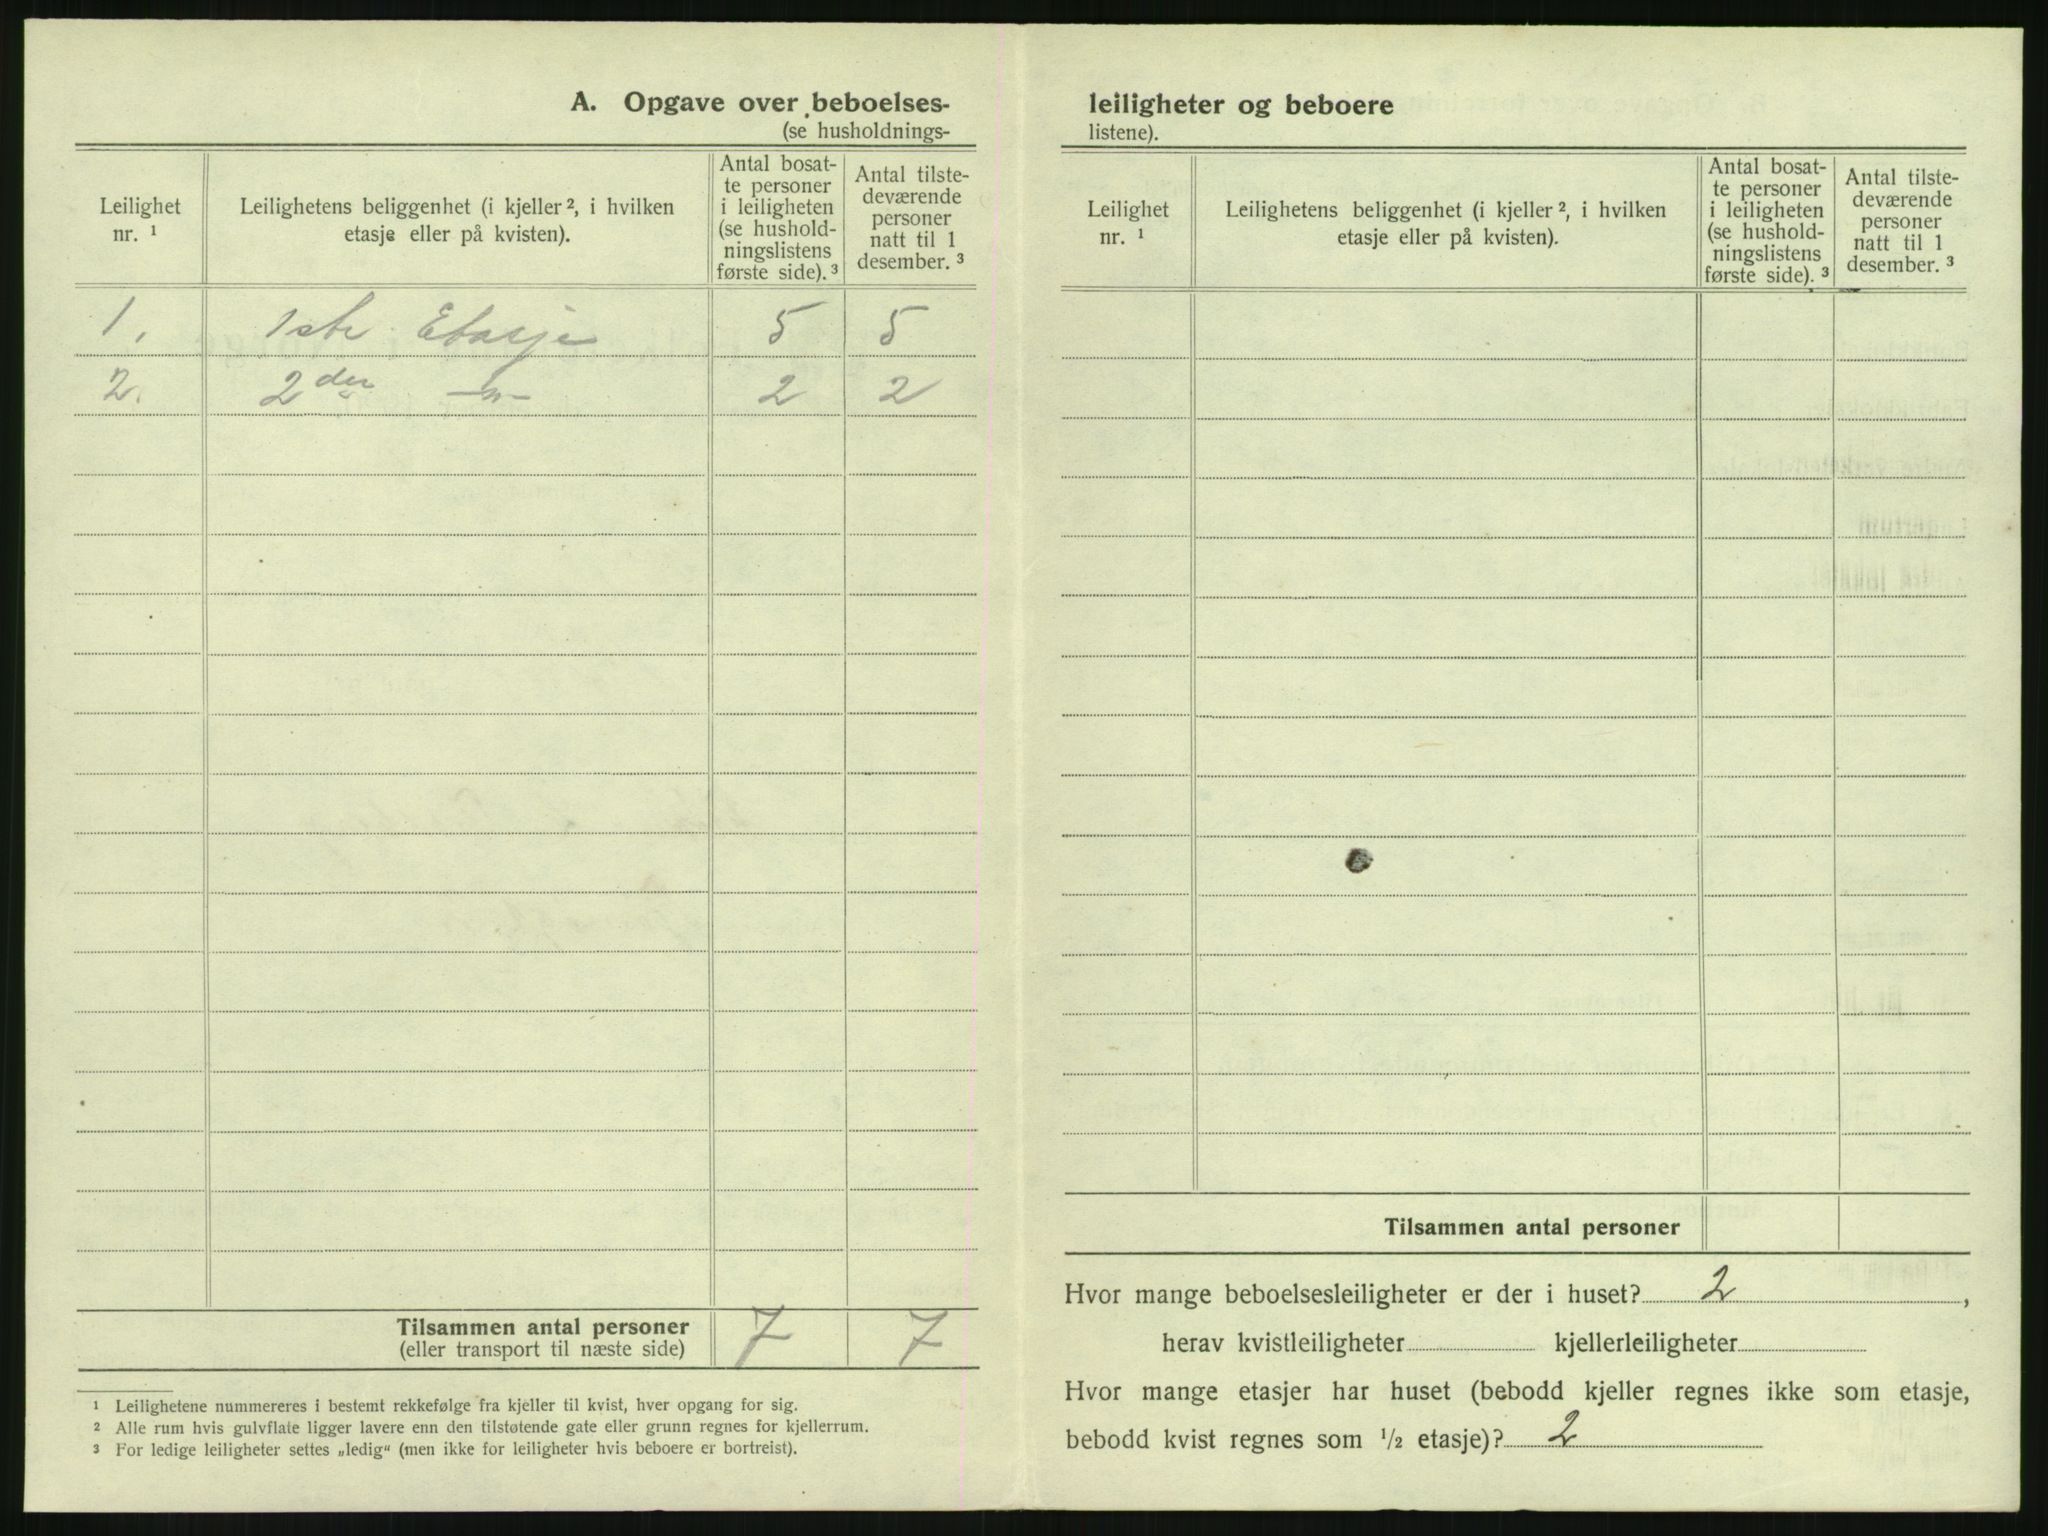 A. Opgave over beboelses-
(se husholdnings-
Leilighet nr. ¹
Leilighetens beliggenhet (i kjeller ², i hvilken etasje eller på kvisten).
Antal bosat-
te personer
i leiligheten
(se hushold-
ningslistens
første side). ³
Antal tilste-
deværende
personer
natt til 1
desember. ³
1. 1ste Etasje 5 5
2. 2den —„— 2 2
Tilsammen antal personer 7 7
(eller transport til næste side)
¹ Leilighetene nummereres i bestemt rekkefølge fra kjeller til kvist, hver opgang for sig.
² Alle rum hvis gulvflate ligger lavere enn den tilstøtende gate eller grunn regnes for kjellerrum.
³ For ledige leiligheter settes „ledig“ (men ikke for leiligheter hvis beboere er bortreist).
leiligheter og beboere
listene).
Leilighet nr. ¹
Leilighetens beliggenhet (i kjeller ², i hvilken etasje eller på kvisten).
Antal bosat-
te personer
i leiligheten
(se hushold-
ningslistens
første side). ³
Antal tilste-
deværende
personer
natt til 1
desember. ³
Tilsammen antal personer
Hvor mange beboelsesleiligheter er der i huset? 2,
herav kvistleiligheter kjellerleiligheter
Hvor mange etasjer har huset (bebodd kjeller regnes ikke som etasje,
bebodd kvist regnes som ½ etasje)? 2